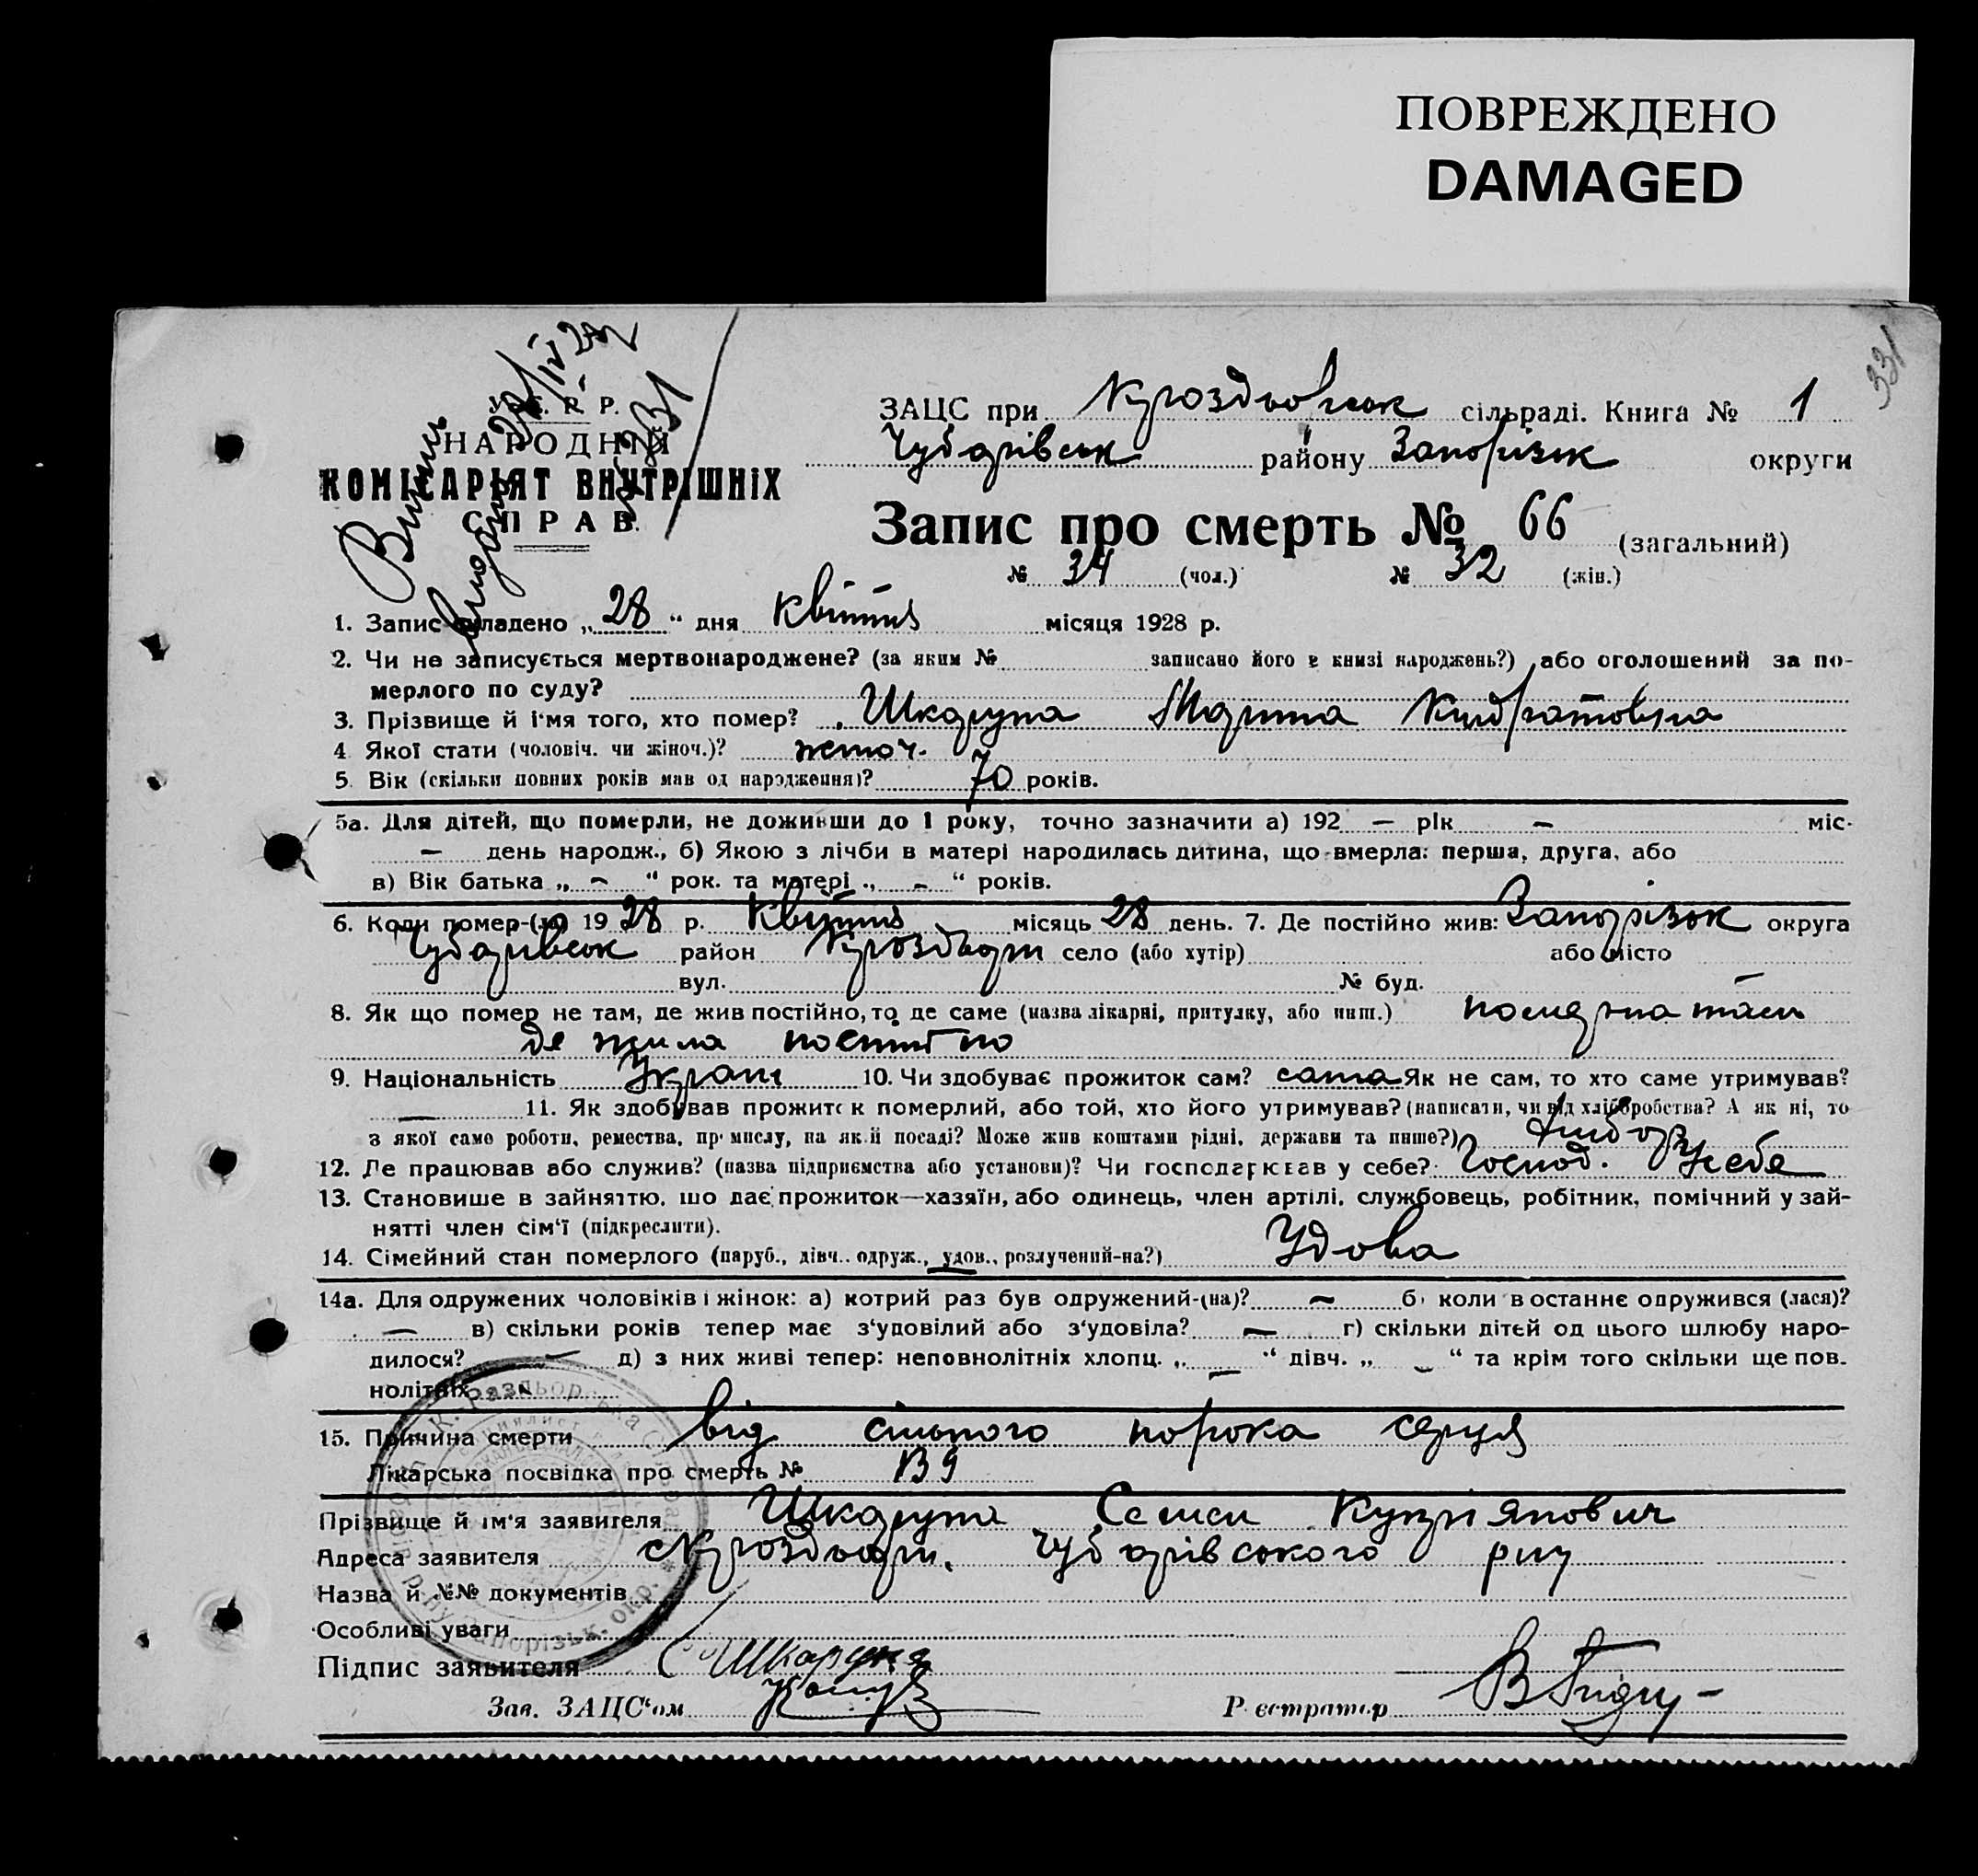 ПОВРЕЖДЕНО
DAMAGED
331
У. С. Р. Р.
НАРОДНІЙ
КОМІСАРІЯТ ВНУТРІШНІХ
СПРАВ.
ЗАЦС при Кроздьовськ сільраді. Книга № 1
Чубарівськ району Запорізьк округи
Запис про смерть № 66 (загальний)
№ 34 (чол.) № 32 (жін.)
1. Запис складено „28“ дня Квітня місяця 1928 р.
2. Чи не записується мертвонароджене? (за яким № записано його в книзі народжень?) або оголошений за по-
мерлого по суду?
3. Прізвище й ім'я того, хто помер? Шкарупа Марина Кіндратовна
4. Якої стати (чоловіч. чи жіноч.)? жіноч.
5. Вік (скільки повних років мав од народження)? 70 років.
5а. Для дітей, що померли, не доживши до 1 року, точно зазначити а) 192 — рік — міс.
— день народж., б) Якою з лічби в матері народилась дитина, що вмерла: перша, друга, або
в) Вік батька „ – “ рок. та матері „ – “ років.
6. Коли помер-(ла) 1928 р. Квітня місяць 28 день. 7. Де постійно жив: Запорізьк округа
Чубарівськ район Кроздьори село (або хутір) або місто
вул. № буд. —
8. Як що помер не там, де жив постійно, то де саме (назва лікарні, притулку, або инш.) померла там
де жила постійно
9. Національність Украін 10. Чи здобуває прожиток сам? сама Як не сам, то хто саме утримував?
— 11. Як здобував прожиток померлий, або той, хто його утримував? (написати, чи від хліборобства? А як ні, то
з якої само роботи, ремества, промислу, на якій посаді? Може жив коштами рідні, держави та инше?) хлібор
12. Де працював або служив? (назва підприємства або установи)? Чи господарював у себе? Господ. у себе
13. Становище в зайняттю, що дає прожиток—хазяїн, або одинець, член артілі, службовець, робітник, помічний у зай-
нятті член сім'ї (підкреслити).
14. Сімейний стан померлого (паруб., дівч., одруж., удов., розлучений-на?) Удова
14а. Для одружених чоловіків і жінок: а) котрий раз був одружений-(на)? — б) коли в останнє одружився (лася)?
— в) скільки років тепер має з'удовілий або з'удовіла? — г) скільки дітей од цього шлюбу наро-
дилося? — д) з них живі тепер: неповнолітніх хлопц. „ — “ дівч. „ — “ та крім того скільки ще пов.
нолітніх
15. Причина смерти від сільного порока серця
Лікарська посвідка про смерть №
Прізвище й ім'я заявителя Шкарупа Семен Купріянович
Адреса заявителя с Кроздьори, Чубарівського р-ну
Назва й №№ документів
Особливі уваги
Підпис заявителя С Шкарупа
Зав. ЗАЦС'ом
Реєстратор